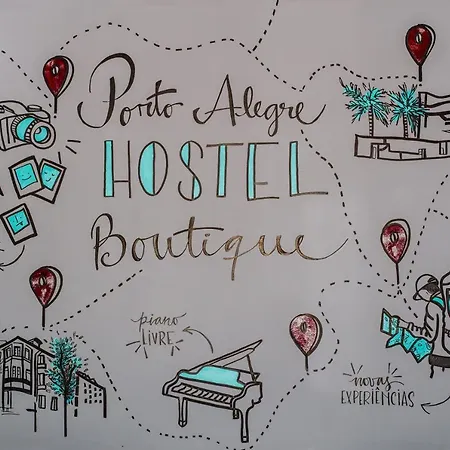 Porto Alegre
HOSTEL
Boutique
piano
LIVRE
novas
EXPERIÊNCIAS